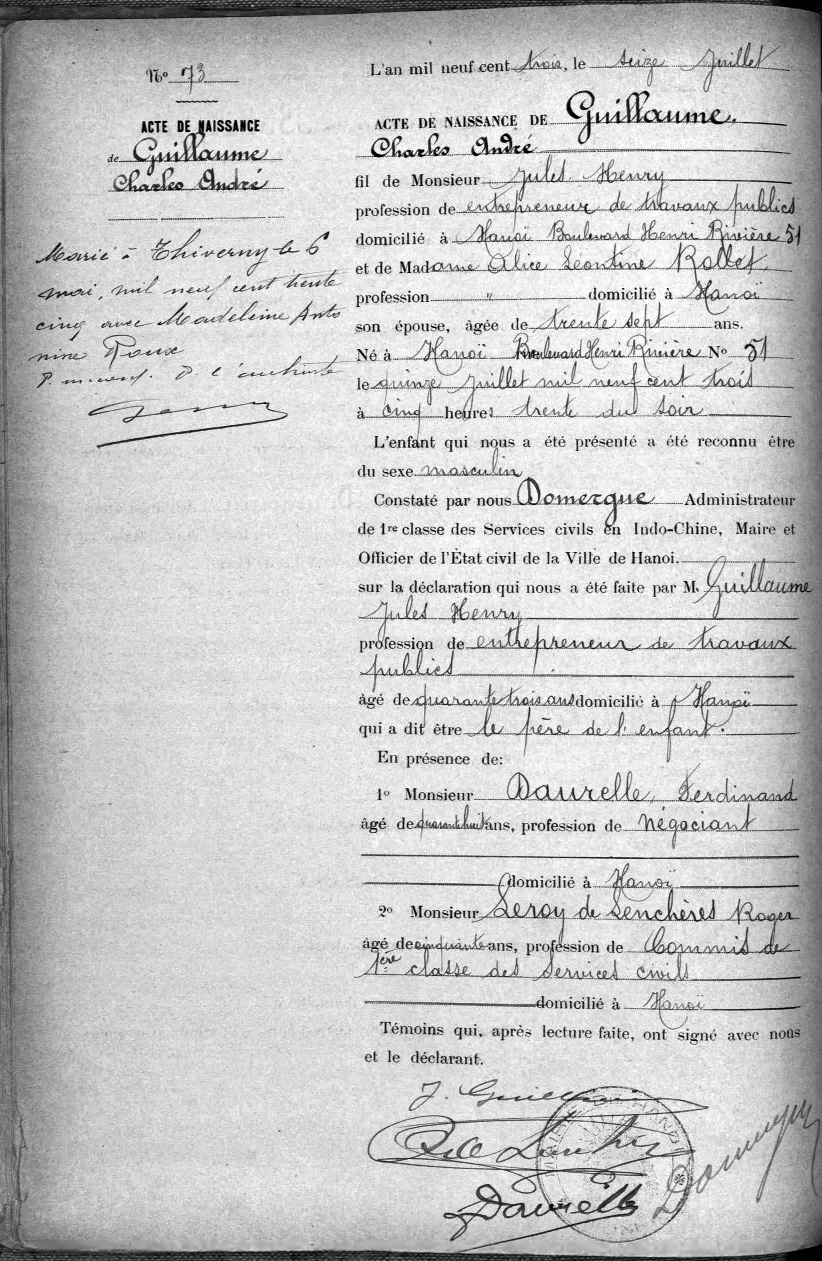 No 73
ACTE DE NAISSANCE
de Guillaume
Charles André
Marié à Thiverny le 6
mai, mil neuf cent trente
cinq avec Madeleine Anto
nine Roux
L'an mil neuf cent trois, le seize Juillet
ACTE DE NAISSANCE DE Guillaume.
Charles André
fil de Monsieur Jules Henry
profession de entrepreneur de travaux publics
domicilié à Hanoï Boulevard Henri Rivière 51
et de Madame Alice Léontine Rollet
profession " domicilié à Hanoï
son épouse, âgée de trente sept ans.
Né à Hanoï Boulevard Henri Rivière No 51
le quinze Juillet mil neuf cent trois
à cinq heures trente du soir
L'enfant qui nous a été présenté a été reconnu être
du sexe masculin
Constaté par nous Domergue Administrateur
de 1re classe des Services civils en Indo-Chine, Maire et
Officier de l'État civil de la Ville de Hanoi.
sur la déclaration qui nous a été faite par M. Guillaume
Jules Henry
profession de entrepreneur de travaux
publics
âgé de quarante trois ans domicilié à Hanoï
qui a dit être le père de l'enfant.
En présence de:
1o Monsieur Daurelle, Ferdinand
âgé de quarante huit ans, profession de négociant
domicilié à Hanoï
2o Monsieur Leroy de Lenchères Roger
âgé de cinquante ans, profession de Commis de
1ère classe des Services civils
domicilié à Hanoï
Témoins qui, après lecture faite, ont signé avec nous
et le déclarant.
J. Guillaume
Daurelle
Domergue